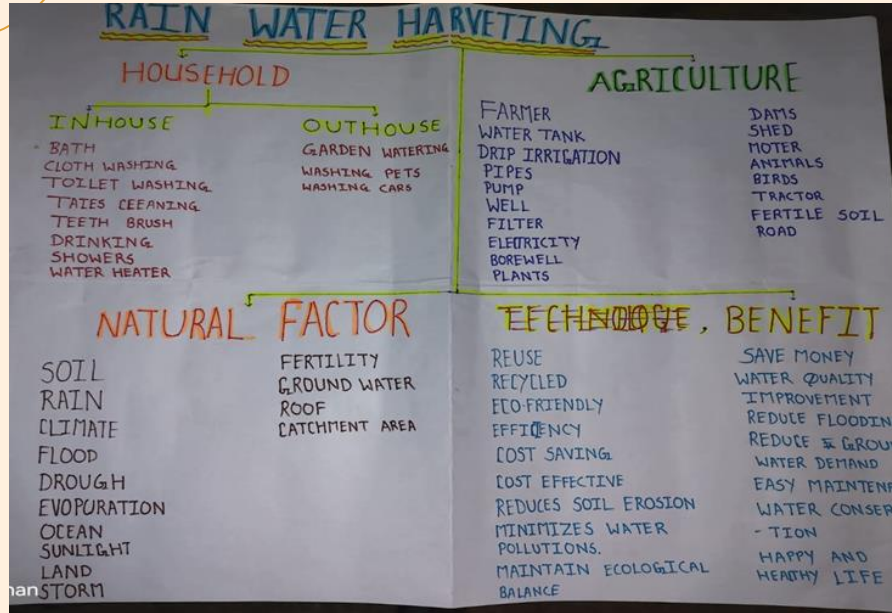 RAIN WATER HARVETING
HOUSEHOLD
INHOUSE
BATH
CLOTH WASHING
TOILET WASHING
TAIES CEEANING
TEETH BRUSH
DRINKING
SHOWERS
WATER HEATER
OUTHOUSE
GARDEN WATERING
WASHING PETS
WASHING CARS
AGRICULTURE
FARMER
WATER TANK
DRIP IRRIGATION
PIPES
PUMP
WELL
FILTER
ELETRICITY
BOREWELL
PLANTS
DAMS
SHED
MOTER
ANIMALS
BIRDS
TRACTOR
FERTILE SOIL
ROAD
NATURAL FACTOR
SOIL
RAIN
CLIMATE
FLOOD
DROUGH
EVOPURATION
OCEAN
SUNLIGHT
LAND
STORM
FERTILITY
GROUND WATER
ROOF
CATCHMENT AREA
, BENEFIT
REUSE
RECYCLED
ECO-FRIENDLY
EFFICENCY
COST SAVING
COST EFFECTIVE
REDUCES SOIL EROSION
MINIMIZES WATER
POLLUTIONS.
MAINTAIN ECOLOGICAL
BALANCE
SAVE MONEY
WATER QUALITY
IMPROVEMENT
REDUCE FLOODIN
REDUCE GROU
WATER DEMAND
EASY MAINTEN
WATER CONSER
- TION
HAPPY AND
HEALTHY LIFE